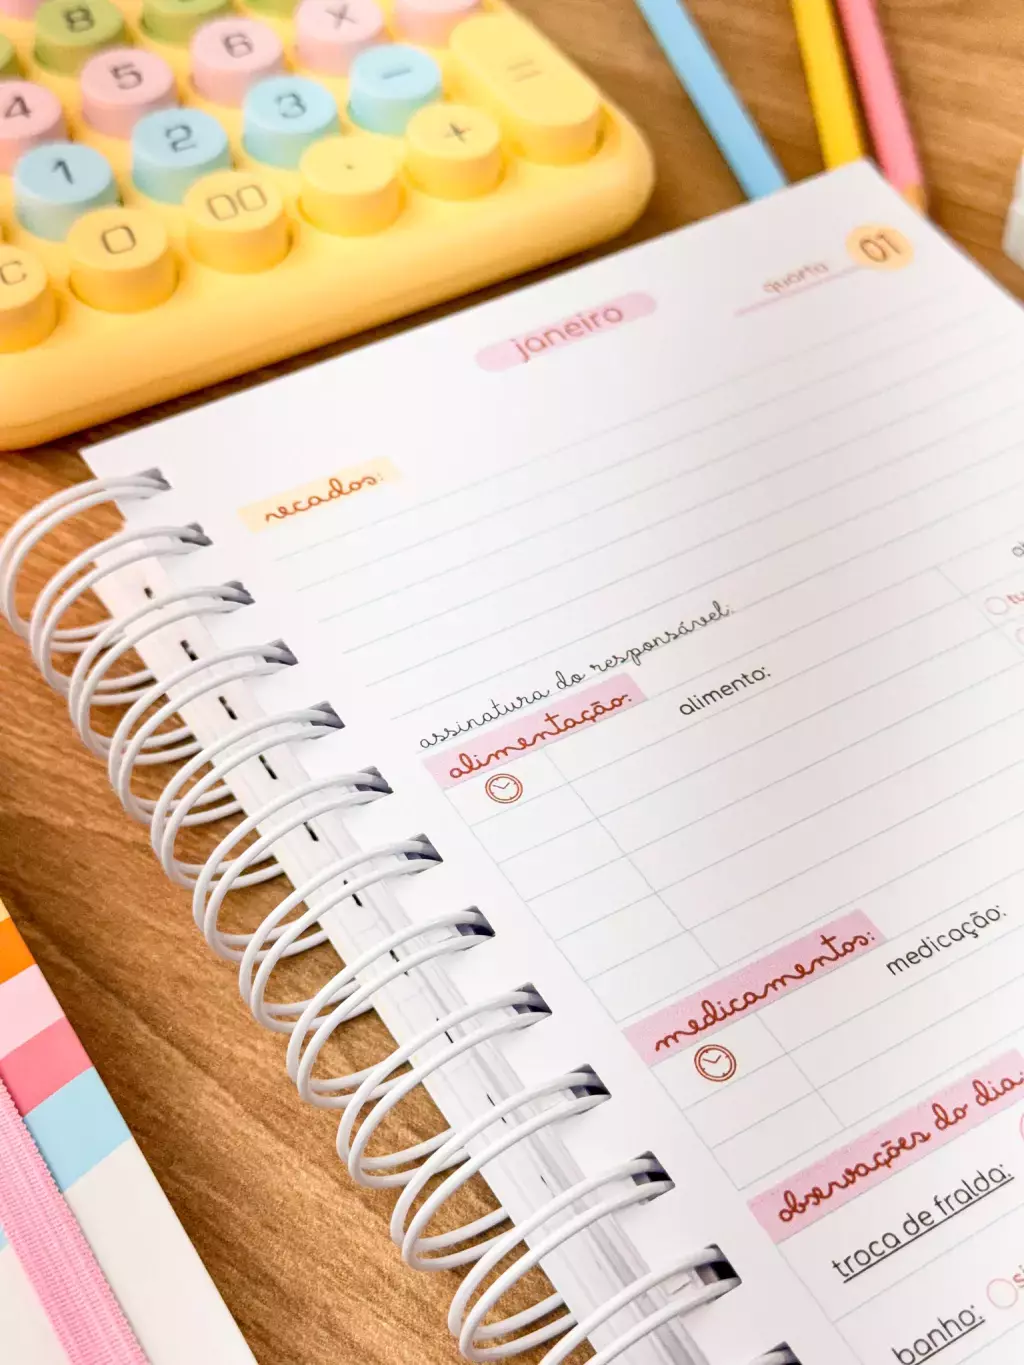 8
4 5 6 X
1 2 3 −
C 0 00 . + =
quarta 01
janeiro
recados:
assinatura do responsável:
alimentação: alimento:
medicamentos: medicação:
observações do dia:
troca de fralda:
banho: